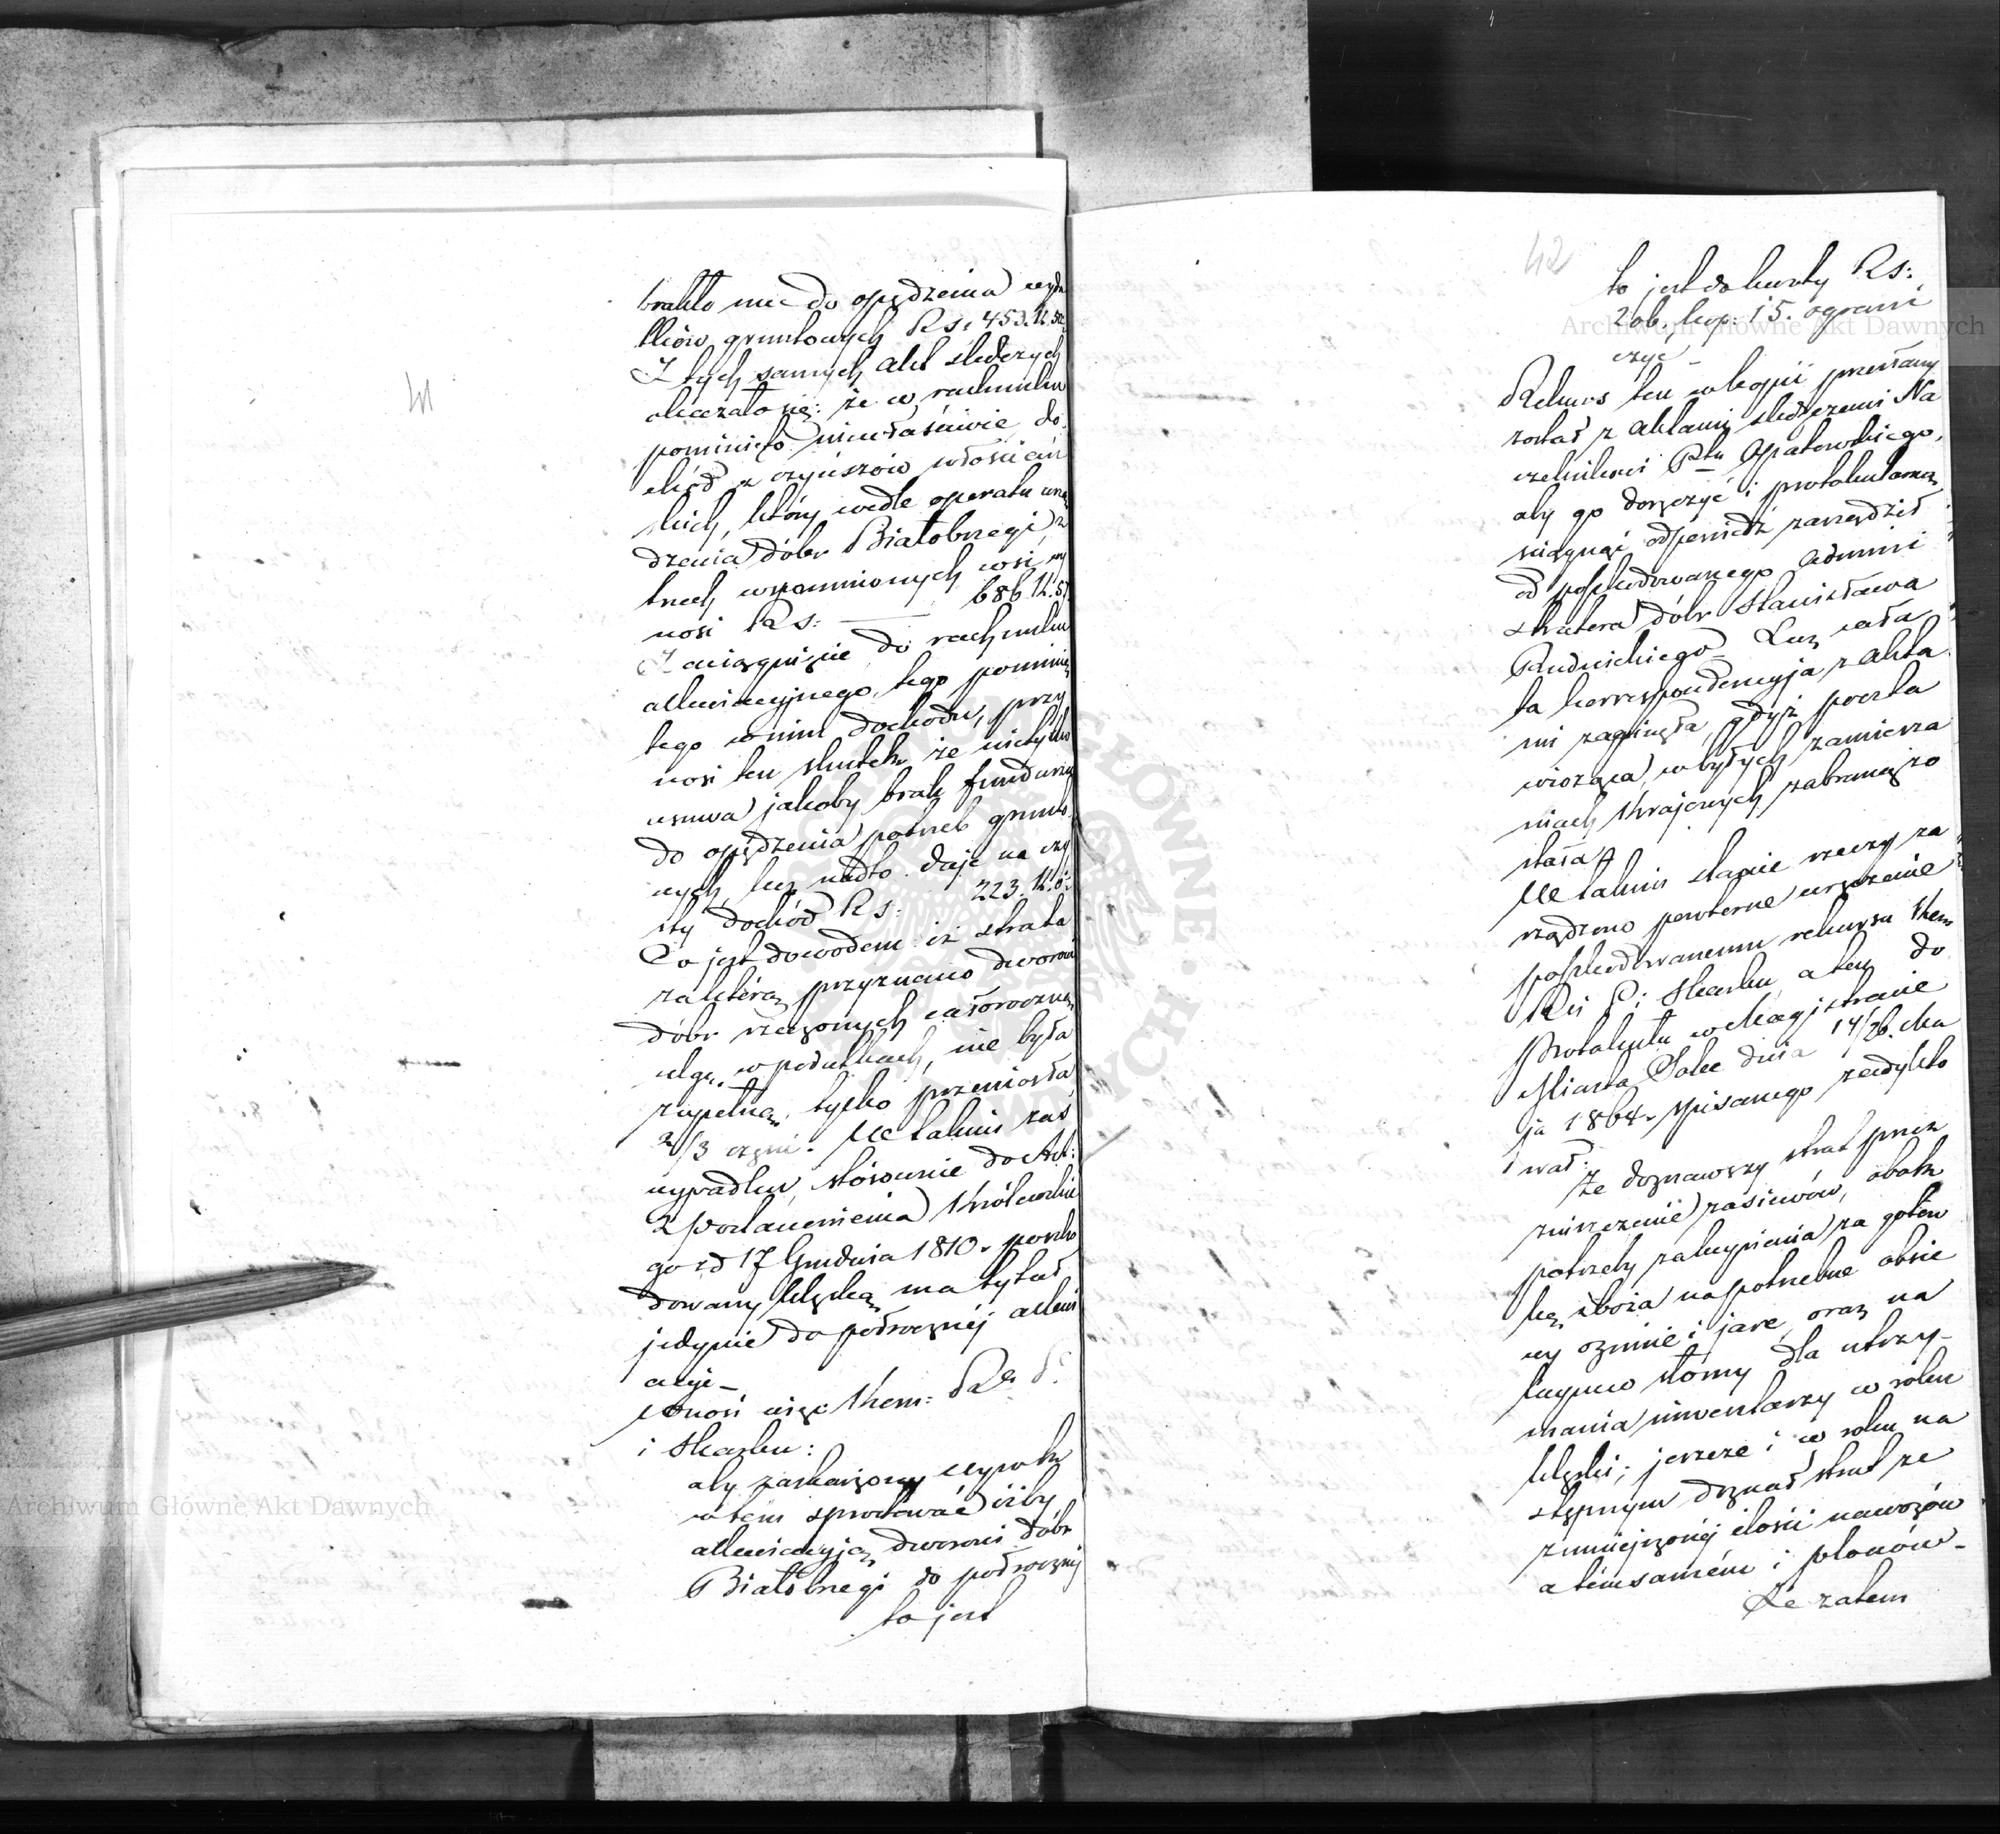 41
brakło mu do opędzenia wyda
tków gruntowych Rs. 453. k. 52
Z tych samych akt śledczych
okazało się: że w rachunku
pominięto niewłaściwie do
chód z czynszów włościań
skich, który wedle operatu urzą
dzenia dóbr Białobrzegi, z
trzech wspomnionych wsi, wy
nosi Rs: — 686. k. 57
Zaciągnięcie do rachunku
allewiacyjnego, tego pominię
tego w nim dochodu, przy
nosi ten skutek że nietylko
usuwa jakoby brak funduszu
do opędzenia potrzeb grunto
wych, lecz nadto daje na czy
sty dochód Rs: 223. k.
Co jest dowodem iż strata
za którą przyznano dworowi
dóbr rzeczonych całoroczną
ulgę w podatkach, nie była
zupełną, tylko przeniosła
2/3 części. W takim zaś
wypadku, stósownie do Art:
2 Postanowienia Królewskie
go z d 17 Grudnia 1810 r. poszko
dowany klęską ma tytuł
jedynie do półrocznéj allewi
acyi –
Wnosi więc Kom: Rz. P.
i Skarbu:
aby zaskarżony wyrok
w tem sprostować iżby
allewiacyją dworowi dóbr
Białobrzegi do półrocznej
to jest
42
to jest do kwoty Rs:
206. kop. 15. ograni
czyć –
Rekurs ten w kopii przesłany
został z aktami śledczemi Na
czelnikowi Ptu Opatowskiego,
aby go doręczyć i protokularną
ściągnąć odpowiedź zarządził
od poszkodowanego Admini
stratora dóbr Stanisława
Rudnickiego. Lecz cała
ta korrespondencyja z akta
mi zaginęła, gdyż poczta
wioząca, w byłych zamiesza
niach krajowych zabraną zo
stała.
W takim stanie rzeczy za
rządzono powtórne wręczenie
poszkodowanemu rekursu Kom
Rz P: i Skarbu, a ten do
Protokułu w Magistracie
Miasta Solec dnia 14/26. Ma
ja 1864 r. spisanego zadykto
wał:
Że doznawszy strat przez
zniszczenie zasiewów, obok
potrzeby zakupienia za gotów
kę zboża na potrzebne obsie
wy ozimie i jare, oraz na
kupno słómy dla utrzy-
mania inwentarzy w roku
klęski; jeszcze i w roku na
stępnym doznał strat ze
zmniejszonéj ilości nawozów
a temsamém i plonów –
Że zatem
Archiwum Główne Akt Dawnych
Archiwum Główne Akt Dawnych
ARCHIWUM GŁÓWNE AKT DAWNYCH